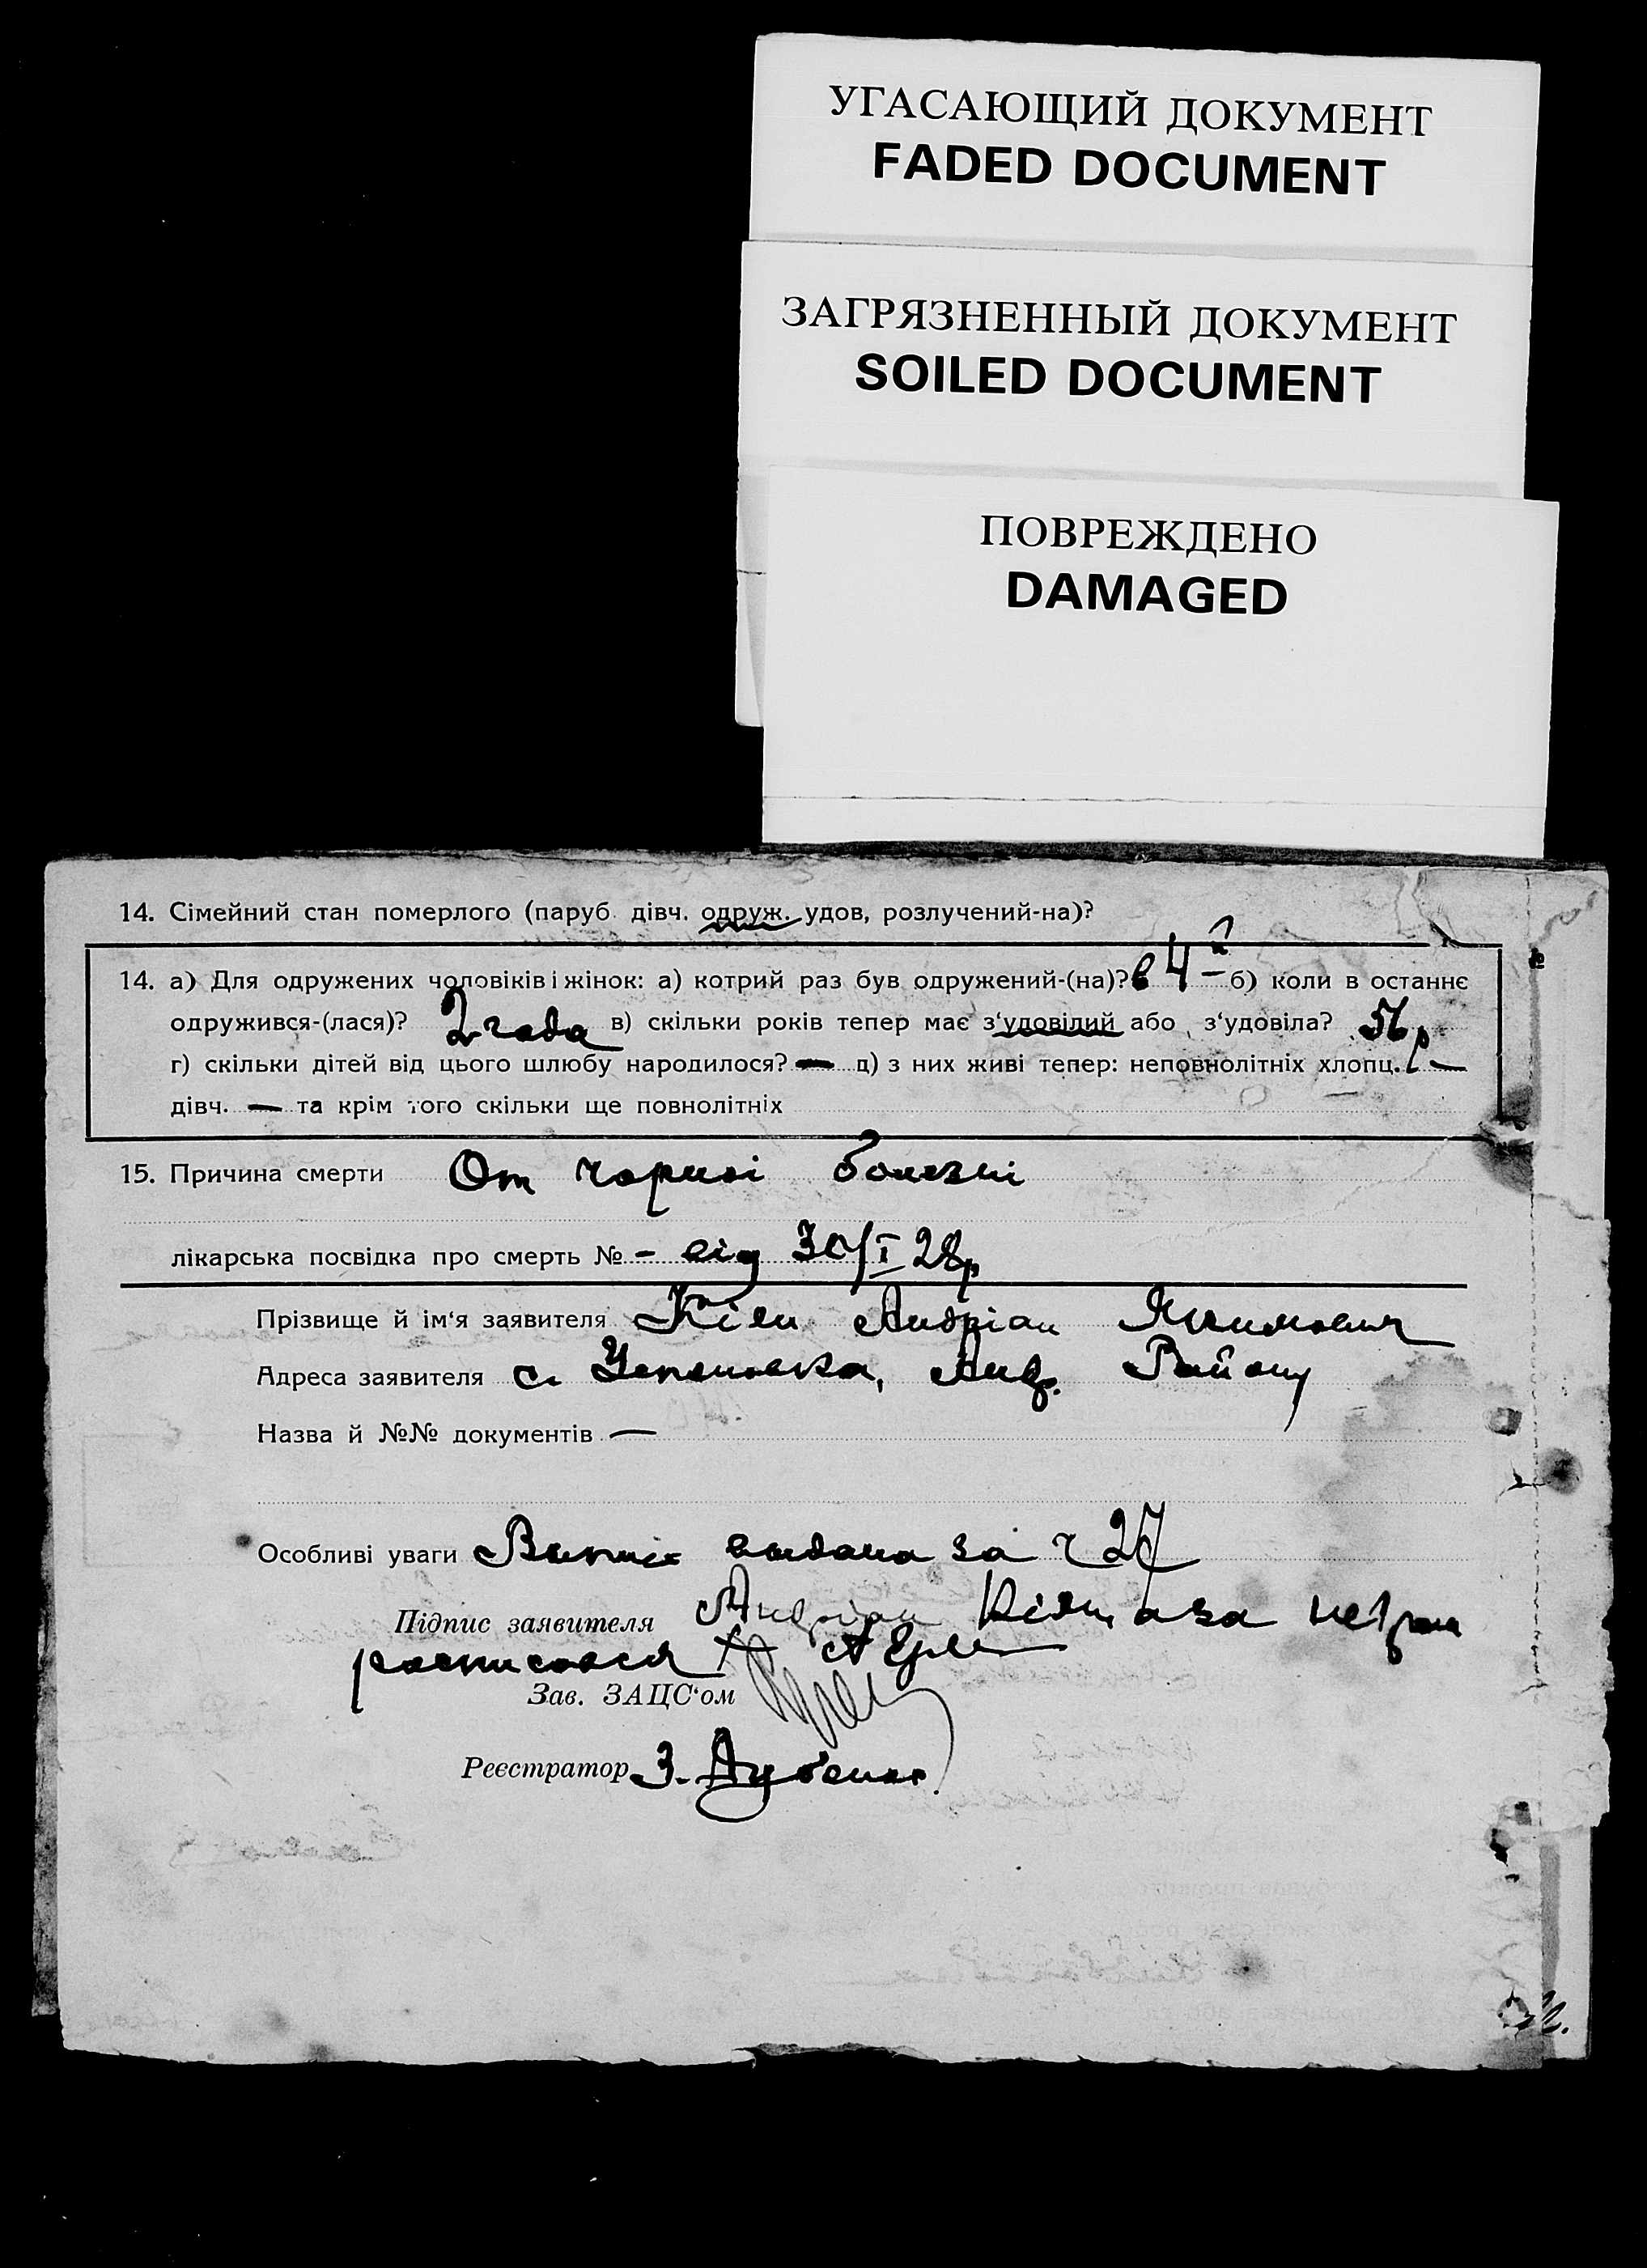 УГАСАЮЩИЙ ДОКУМЕНТ
FADED DOCUMENT
ЗАГРЯЗНЕННЫЙ ДОКУМЕНТ
SOILED DOCUMENT
ПОВРЕЖДЕНО
DAMAGED
14. Сімейний стан померлого (паруб. дівч. одруж. удов, розлучений-на)?
14. а) Для одружених чоловіків і жінок: а) котрий раз був одружений-(на)? в 4-й б) коли в останнє
одружився-(лася)? 2 года в) скільки років тепер має з‘удовілий або з‘удовіла? 56 р
г) скільки дітей від цього шлюбу народилося? — д) з них живі тепер: неповнолітніх хлопц. —
дівч. — та крім того скільки ще повнолітніх
15. Причина смерти От чорної болезні
лікарська посвідка про смерть № - від 30/I 28р
Прізвище й ім‘я заявителя Андріан Якимович
Адреса заявителя с. Успеновка, Району
Назва й №№ документів —
Особливі уваги Випис видана за ч 27
Підпис заявителя Андріан а за негр
росписался
Зав. ЗАЦС‘ом
Реєстратор З.